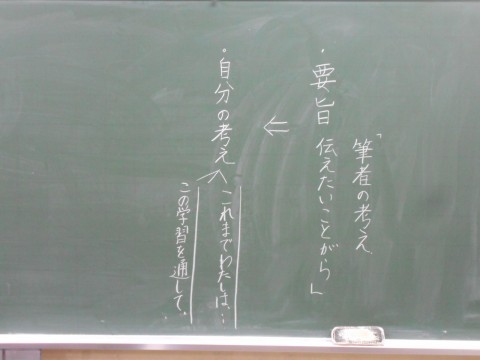 「筆者の考え
・要旨 伝えたいことがら」
⇐
・自分の考え
これまでわたしは…
この学習を通して、